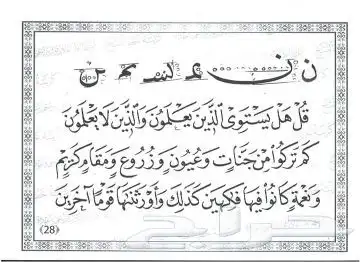 ن ن
قُلْ هَلْ يَسْتَوِى الَّذِينَ يَعْلَمُونَ وَالَّذِينَ لَا يَعْلَمُونَ
كَمْ تَرَكُوا مِنْ جَنَّاتٍ وَعُيُونٍ وَزُرُوعٍ وَمَقَامٍ كَرِيمٍ
وَنَعْمَةٍ كَانُوا فِيهَا فَاكِهِينَ كَذَلِكَ وَأَوْرَثْنَاهَا قَوْمًا آخَرِينَ
(28)
حراج